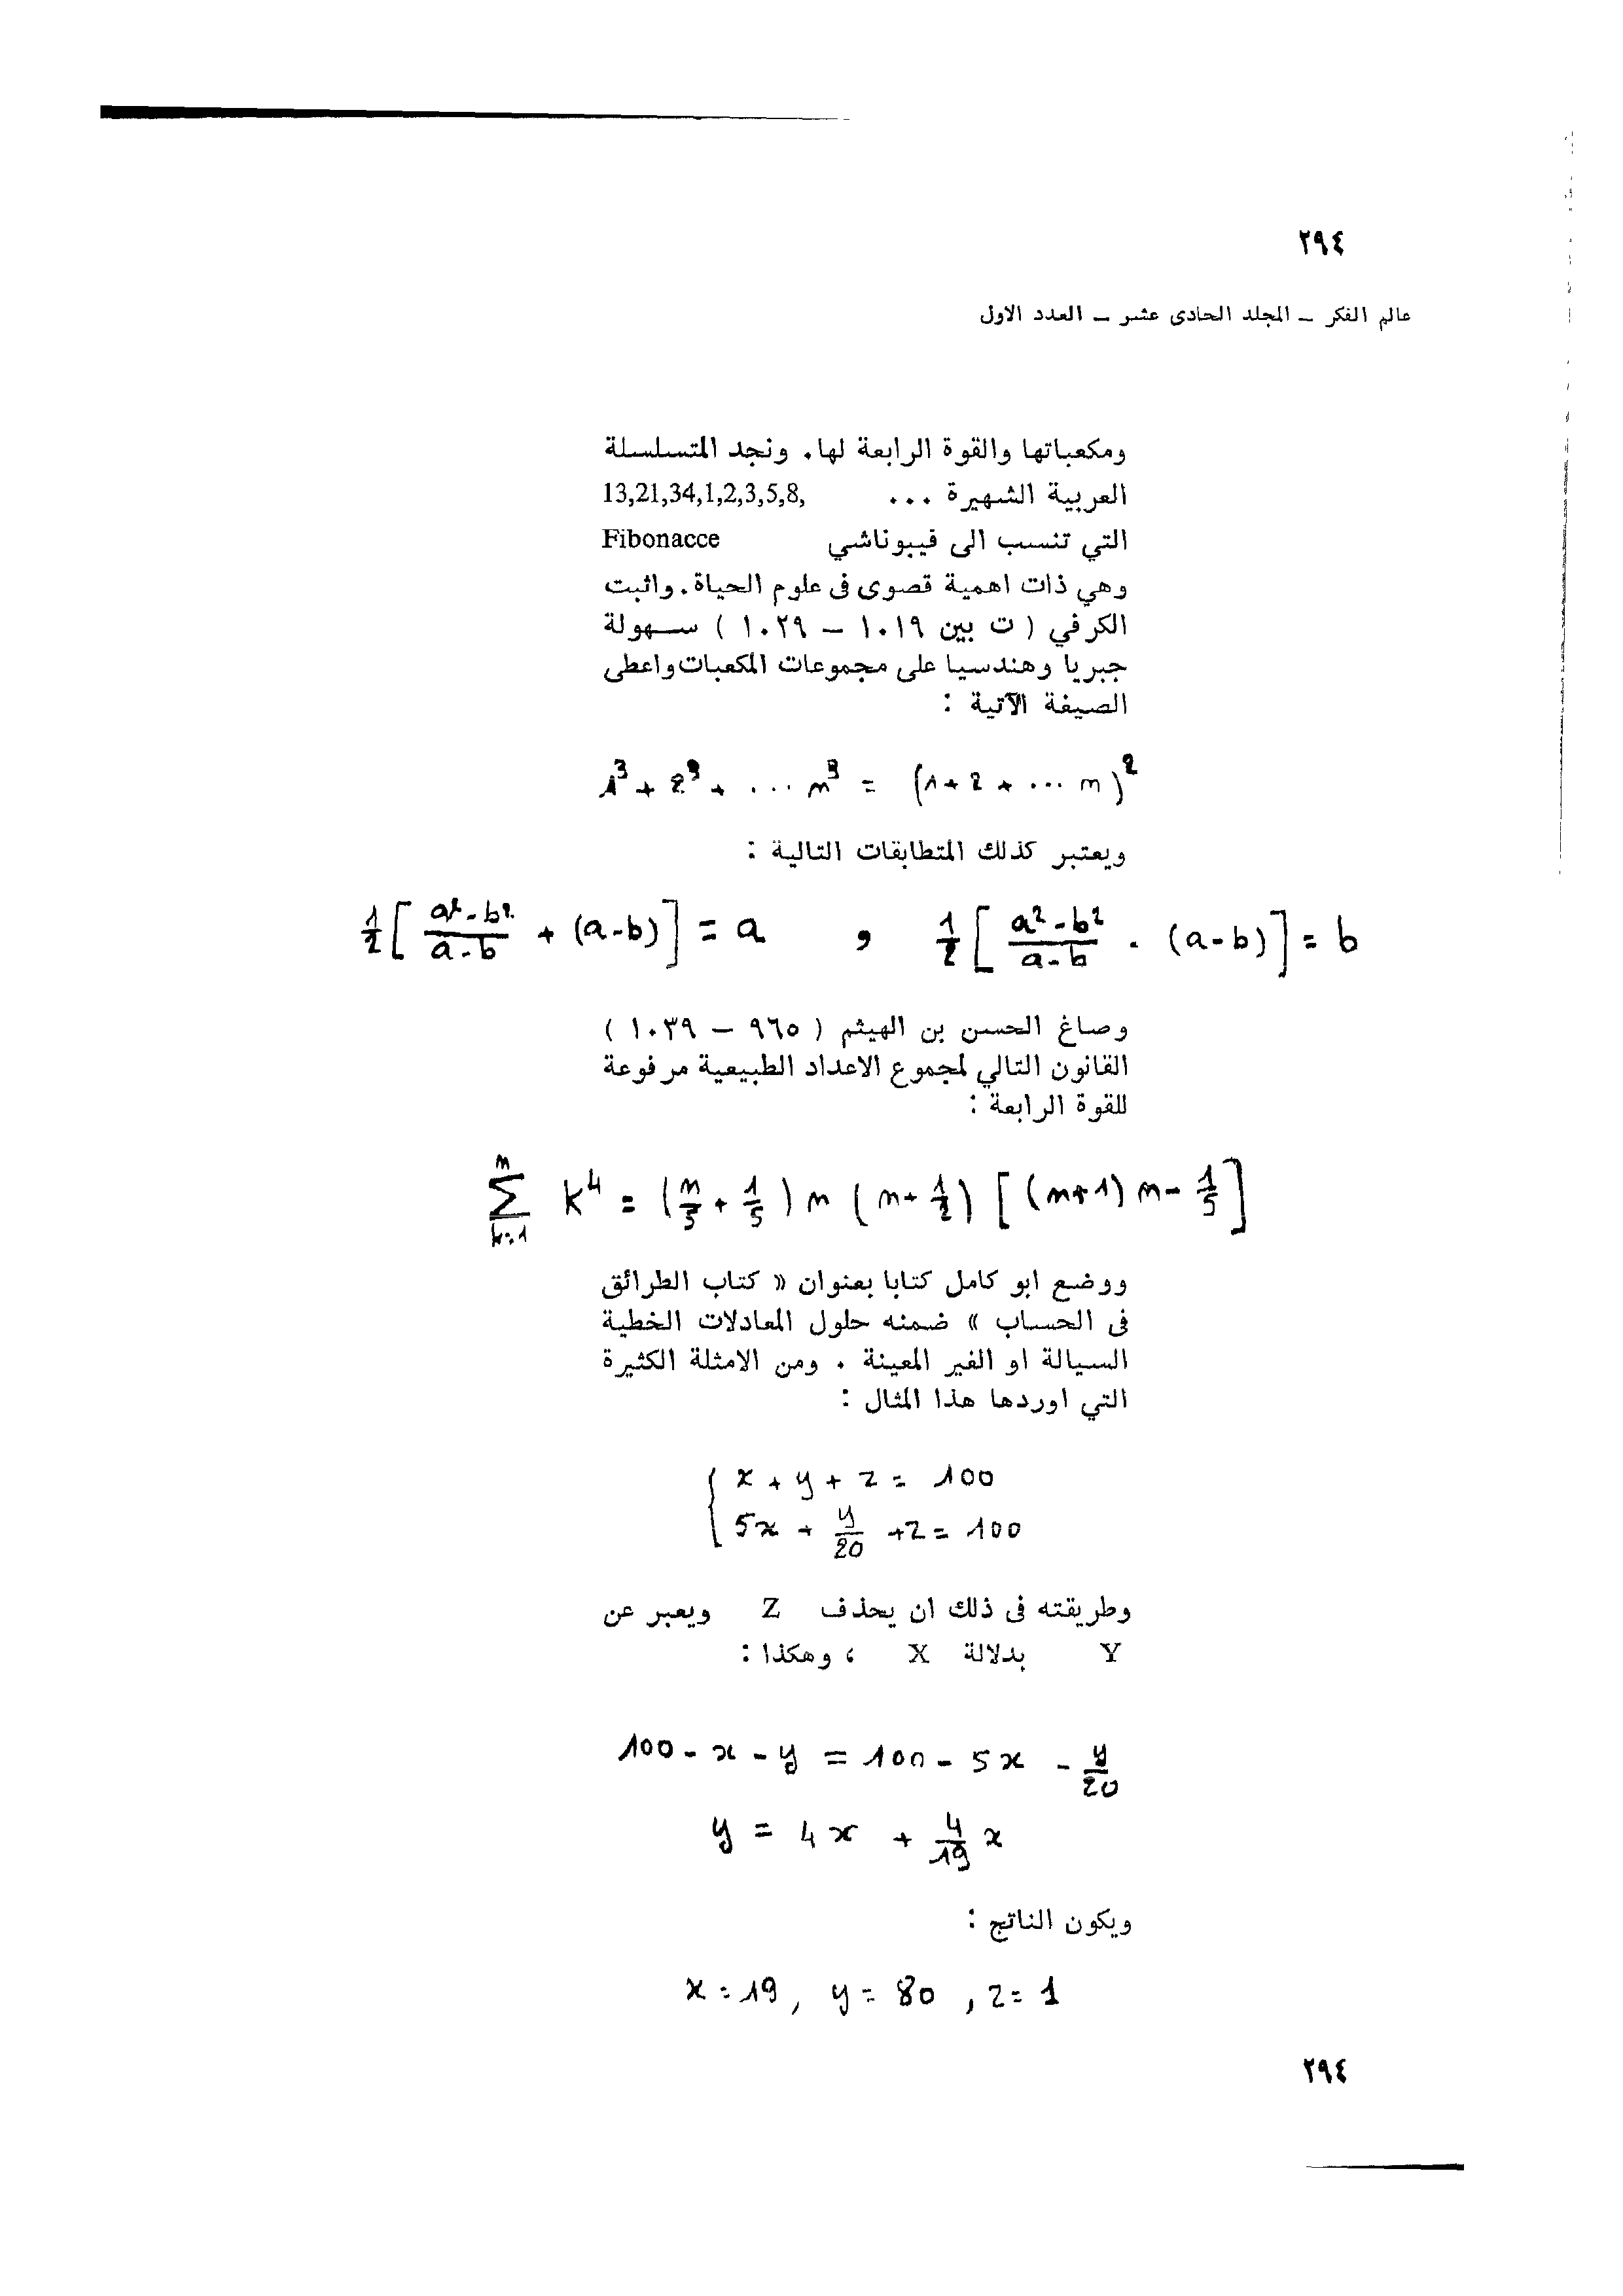 ٢٩٤
عالم الفكر – المجلد الحادى عشر – العدد الاول
ومكعباتها والقوة الرابعة لها. ونجد المتسلسلة
العربية الشهيرة ... 13,21,34,1,2,3,5,8,
التي تنسب الى فيبوناشي Fibonacce
وهي ذات اهمية قصوى فى علوم الحياة. واثبت
الكرفي ( ت بين ١٠١٩ – ١٠٢٩ ) سهولة
جبريا وهندسيا على مجموعات المكعبات واعطى
الصيغة الآتية :
1³ + 2³ + ... m³ = (1+2+ ... m)²
ويعتبر كذلك المتطابقات التالية :
½[(a²-b²)/(a-b) + (a-b)] = a , ½[(a²-b²)/(a-b) - (a-b)] = b
وصاغ الحسن بن الهيثم ( ٩٦٥ – ١٠٣٩ )
القانون التالي لمجموع الاعداد الطبيعية مرفوعة
للقوة الرابعة :
∑_{k=1}^{m} k⁴ = (m/5 + 1/5) m (m + ½) [(m+1) m - 1/5]
ووضع ابو كامل كتابا بعنوان « كتاب الطرائق
فى الحساب » ضمنه حلول المعادلات الخطية
السيالة او الغير المعينة . ومن الامثلة الكثيرة
التي اوردها هذا المثال :
x + y + z = 100
5x + y/20 + z = 100
وطريقته فى ذلك ان يحذف Z ويعبر عن
Y بدلالة X ، وهكذا :
100 - x - y = 100 - 5x - y/20
y = 4x + 4/19 x
ويكون الناتج :
x = 19, y = 80, z = 1
٢٩٤